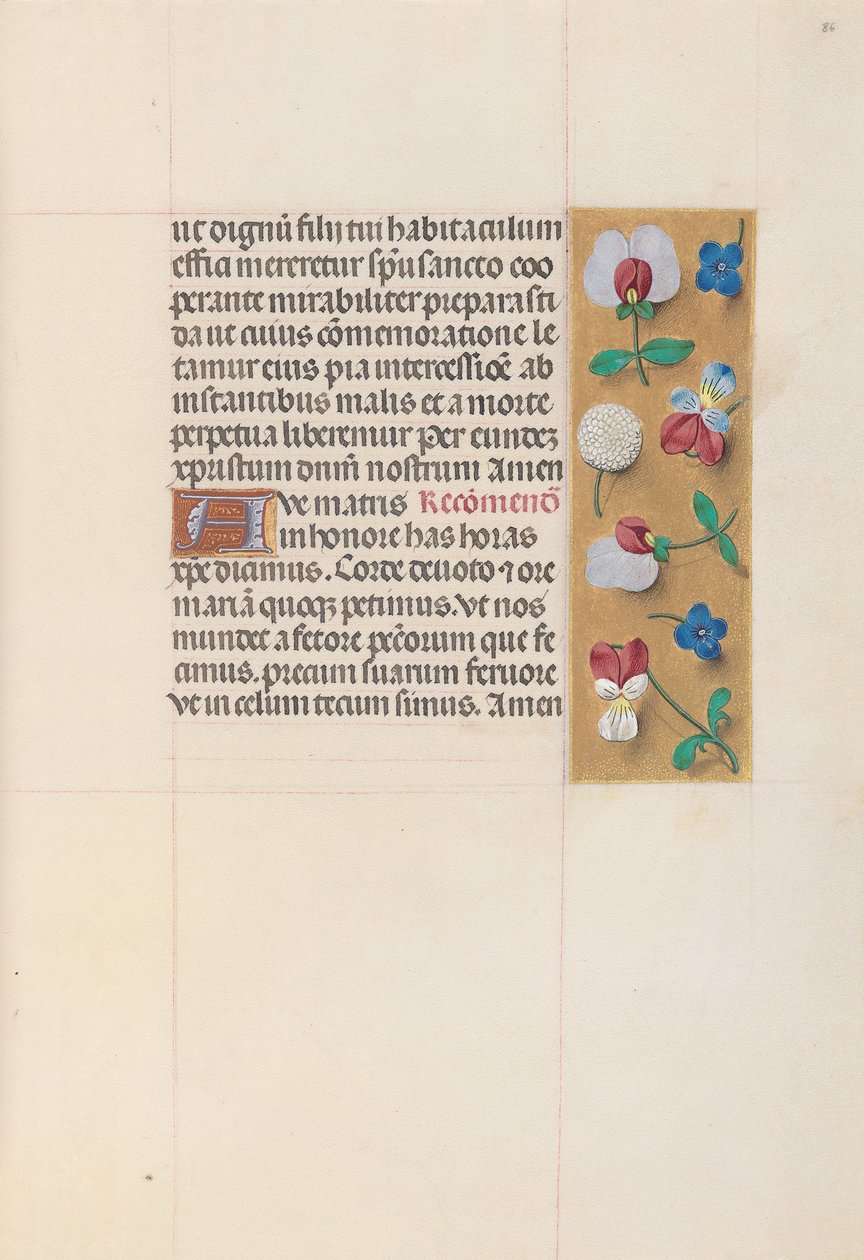 86
ut dignū filij tui habitaculum
effici mereretur sp̄u sancto coo
perante mirabiliter preparasti
da ut cuius cōmemoratione le
tamur eius pia intercessiōe ab
instantibus malis et a morte
perpetua liberemur Per eundeꝫ
xpristum dnm̄ nostrum Amen
Ave matris Recōmendō
in honore has horas
xp̄e dicimus. Corde deuoto ⁊ ore
mariā quoqꝫ petimus. Vt nos
mundet a fetore pec̄orum que fe
cimus. precum suarum feruore
vt in celum tecum simus. Amen